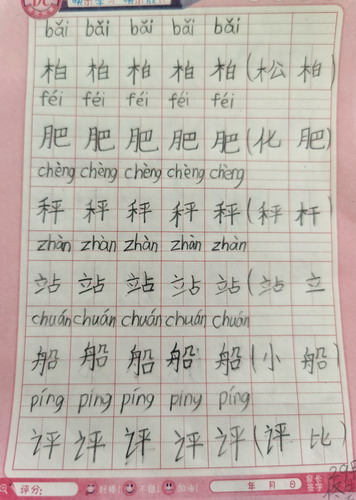 bǎi bǎi bǎi bǎi bǎi
柏 柏 柏 柏 柏(松 柏)
féi féi féi féi féi
肥 肥 肥 肥 肥(化 肥)
chèng chèng chèng chèng chèng
秤 秤 秤 秤 秤(秤 杆)
zhàn zhàn zhàn zhàn zhàn
站 站 站 站 站(站 立
chuán chuán chuán chuán chuán
船 船 船 船 船(小 船)
píng píng píng píng píng
评 评 评 评 评(评 比)
评分: 好棒! 不错! 加油! 年 月 日 家长签字